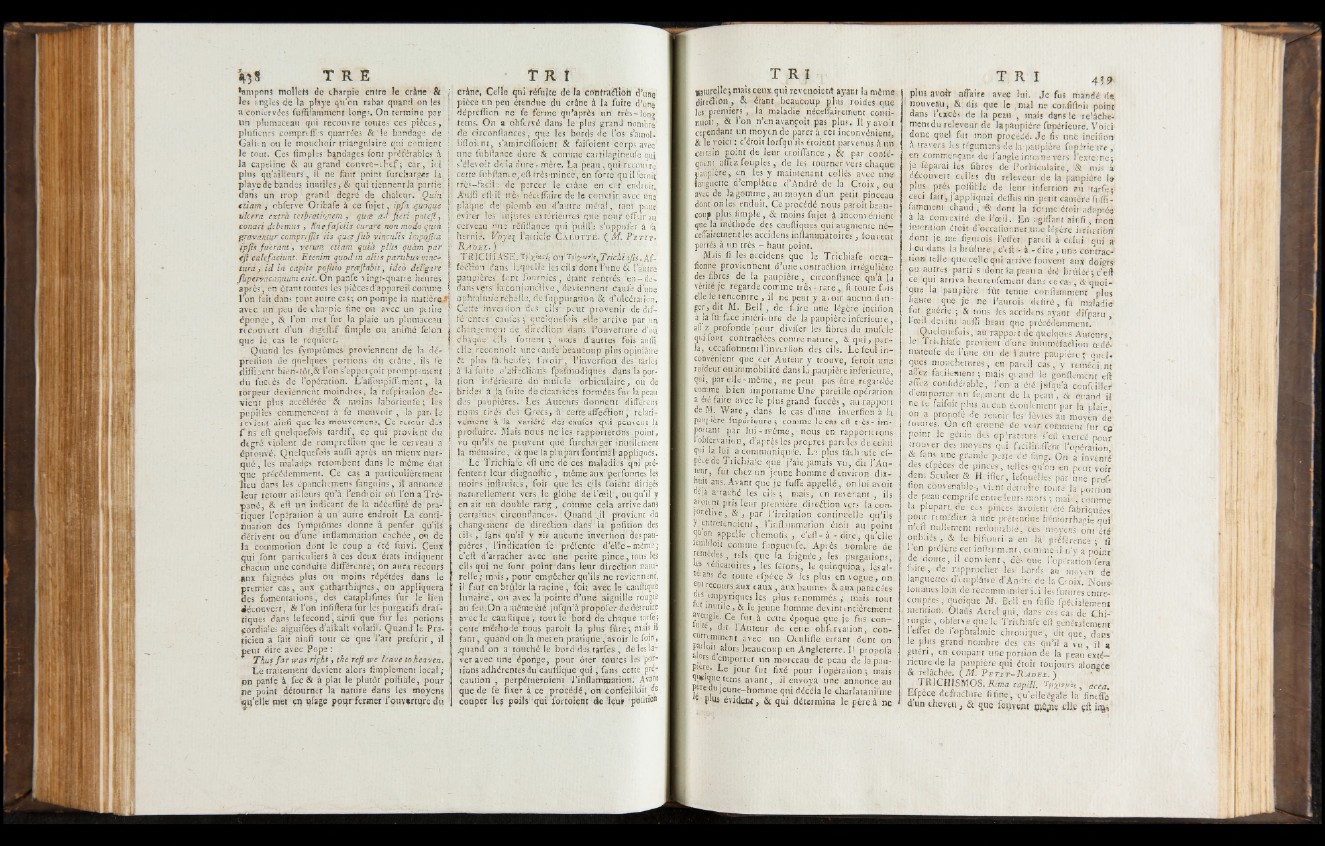 438 TRE
tampons mollets de charpie entre le crâne &
les angles de la playe qu'on rabat quand on les
a conservées suffisamment longs. On termine par
un plumaceau qui recouvre toutes ces pièces,
plusieurs compresses quarrées & le bandage de
Galien ou le mouchoir triangulaire qui contient
le tout. Ces simples bandages sont préférables à
la capeline & au grand couvre-chef; car, ici
plus qu'ailleurs, il ne faut point surcharger la
playe de bandes inutiles, & qui tiennent la partie
dans un trop grand degré de chaleur. Quin
etiam, observe Oribase à ce sujet, ipsa quoque
ulcera extrà
conari debemus, sine fasciis curare non modo quià
gravantur compressis iis quæ sub vinculis
ipsis fuerant, verum etiam quià plus quàm par
est calefaciunt. Etenim quod in aliis partibus vinc-
tura, id in capite positio præstabit, ideo deligare
supervacaneum erit. On panse vingt-quatre heures
après, en étant toutes les pièces d'appareil comme
l'on fait dans tout autre cas; on pompe la matière
avec un peu de charpie fine ou avec un petite
éponge, & l'on met sur la plaie un plumaceau
recouvert d'un digestif simple ou animé selon
que le cas le requiert.
Quand les symptômes proviennent de la dé-
pression de quelques portions du crâne, ils se
dissipent bien-tôt, & l'on s'apperçoit promptement
du succès de l'opération. L'assoupissement, la
torpeur deviennent moindres, la respiration de-
vient plus accélérée & moins laborieuse; les
pupilles commencent à se mouvoir, la parole
revient ainsi que les mouvemens. Ce retour des
sens est quelquefois tardif, ce qui provient du
degré violent de compression que le cerveau a
éprouvé. Quelquefois aussi après un mieux mar-
qué, les malades retombent dans le même état
que précédemment. Ce cas a particulièrement
lieu dans les épanchemens sanguins, il annonce
leur retour ailleurs qu'à l'endroit où l'on a Tré-
pané, & est un indicant de la nécessité de pra-
tiquer l'opération à un autre endroit. La conti-
nuation des symptômes donne à penser qu'ils
dérivent ou d'une inflammation cachée, ou de
la commotion dont le coup a été suivi. Ceux
qui sont particuliers à ces deux états indiquent
chacun une conduite différente; on aura recours
aux saignées plus ou moins répétées dans le
premier cas, aux cathartiques, on appliquera
des fomentations, des cataplasmes sur le lieu
découvert, & l'on insistera sur les purgatifs dras-
tiques dans le second, ainsi que sur les potions
cordiales aiguisées d'alkali volatil. Quand le Pra-
ticien a fait ainsi tout ce que l'art prescrit, il
peut dire avec Pope:
Thus far was right, the rest we leave to heaven.
Le traitement devient alors simplement local;
on panse à sec & à plat le plutôt possible, pour
ne point détourner la nature dans les moyens
qu'elle met en usage pour fermer l'ouverture du
TRI
crâne. Celle qui résulte de la contraction d'une
pièce un peu étendue du crâne à la suite d'une
dépression ne se ferme qu'après un très-long
tems. On a observé dans le plus grand nombre
de circonstances, que les bords de l'os s'amol-
lissoient, s'amincissoient & faisoient corps avec
une substance dure & comme cartilagineuse qui
s'élevoit de la dure-mère. La peau, qui recouvre
cette substance, est très-mince, en sorte qu'il seroit
très-facile de percer le crâne en cet endroit.
Aussi est-il très-nécessaire de le couvrir avec une
plaque de plomb ou d'autre métal, tant pour
éviter les injures extérieures que pour offrir au
cerveau une résistance qui puisse s'opposer à sa
hernie. Voyez l'article CALOTTE. (M. PETIT-
RADEL.)
TRICHIASE. Af-
fection dans laquelle les cils dont l'une & l'autre
paupières sont fournies, étant rentrés en-de-
dans vers la conjonctive, deviennent cause d'une
ophtalmie rebelle, de suppuration & d'ulcération.
Cette inversion des cils peut provenir de dif-
férentes causes; quelquefois elle arrive par un
changement de direction dans l'ouverture d'où
chaque cils sortent; mais d'autres fois aussi
elle reconnoît une cause beaucoup plus opiniâtre
& plus fâcheuse; savoir, l'inversion des tarses
à la suite d'affections spasmodiques dans la por-
tion inférieure du muscle orbiculaire, ou de
brides à la suite de cicatrices formées sur la peau
des paupières. Les Auteurs donnent différens
noms tirés des Grecs, à cette affection, relati-
vement à la variété des causes qui peuvent la
produire. Mais nous ne les rapporterons point,
vu qu'ils ne peuvent que surcharger inutilement
la mémoire, & que la plupart sont mal appliqués.
Le Trichiase est une de ces maladies qui pré-
sentent leur diagnostic, même aux personnes les
moins instruites, soit que les cils soient dirigés
naturellement vers le globe de l'œil, ou qu'il y
en ait un double rang, comme cela arrive dans
certaines circonstances. Quand il provient du
changement de direction dans la position des
cils, sans qu'il y ait aucune inversion des pau-
pières, l'indication se présente d'elle-même;
c'est d'arracher avec une petite pince, tous les
cils qui ne sont point dans leur direction natu-
relle; mais, pour empêcher qu'ils ne reviennent,
il faut en brûler la racine, soit avec le caustique
lunaire, ou avec la pointe d'une aiguille rougie
au feu. On a même été jusqu'à proposer de détruire
avec le caustique, tout le bord de chaque tarse;
cette méthode nous paroît la plus sûre; mais il
faut, quand on la met en pratique, avoir le soin,
quand on a touché le bord des tarses, de les la-
ver avec une éponge, pour ôter toutes les por-
tions adhérentes du caustique qui, sans cette pré-
caution, perpétueroient l'inflammation. Avant
que de se fixer à ce procédé, on conseilloit de
couper les poils qui sortoient de leur position
TRI
naturelle; mais ceux qui revenoient ayant la même
direction, & étant beaucoup plus roides que
les premiers, la maladie nécessairement conti-
nuoit, & l'on n'en avançoit pas plus. Il y avoit
cependant un moyen de parer à cet inconvénient,
& le voici: c'étoit lorsqu'ils étoient parvenus à un
certain point de leur croissance, & par consé-
quent assez souples, de les tourner vers chaque
paupière, en les y maintenant collés avec une
languette d'emplâtre d'André de la Croix, ou
avec de la gomme, au moyen d'un petit pinceau
dont on les enduit. Ce procédé nous paroît beau-
coup plus simple, & moins sujet à inconvénient
que la méthode des caustiques qui augmente né-
cessairement les accidens inflammatoires, souvent
portés à un très-haut point.
Mais si les accidens que le Trichiase occa-
sionne proviennent d'une contraction irrégulière
des fibres de la paupière, circonstance qu'à la
vérité je regarde comme très-rare, si toute fois
elle se rencontre, il ne peut y avoir aucun dan-
ger, dit M. Bell, de faire une légère incision
à la surface intérieure de la paupière inférieure,
assez profonde pour diviser les fibres du muscle
qui sont contractées contre nature, & qui, par-
là, occasionnent l'inversion des cils. Le seul in-
convénient que cet Auteur y trouve, seroit une
roideur ou immobilité dans la paupière inférieure,
qui, par elle-même, ne peut pas être regardée
comme bien importante. Une pareille opération
a été faite avec le plus grand succès, au rapport
de M. Ware, dans le cas d'une inversion à la
paupière supérieure; comme le cas est très-im-
portant par lui-même, nous en rapporterons
l'observation, d'après les propres paroles de celui
qui la lui a communiquée. Le plus fâcheuse es-
pèce de Trichiase que j'aie jamais vu, dit l'Au-
teur, fut chez un jeune homme d'environ dix-
huit ans. Avant que je fusse appellé, on lui avoit
déjà arraché les cils; mais, en revenant, ils
avoient pris leur première direction vers la con-
jonctive, &, par l'irritation continuelle qu'ils
y entretenoient, l'inflammation étoit au point
qu'on appelle chemosis, c'est-à-dire, qu'elle
sembloit comme fongueuse. Après nombre de
remèdes, tels que la saignée, les purgations,
les vésicatoires, les setons, le quinquina,
de toute espèce & les plus en vogue, on
eut recours aux eaux, aux baumes & aux panacées
des empyriques les plus renommés; mais tout
fut inutile, & le jeune homme devint entièrement
aveugle. Ce fut à cette époque que je fus con-
sulté, dit l'Auteur de cette observation, con-
curremment avec un Oculiste errant dont on
parloit alors beaucoup en Angleterre. Il proposa
alors d'emporter un morceau de peau de la pau-
pière. Le jour fut fixé pour l'opération; mais
quelque tems avant, il envoya une annonce au
père du jeune-homme qui décéla le charlatanisme
le plus évident, & qui détermina le père à ne
TRI 439
plus avoir affaire avec lui. Je fus mandé de
nouveau, & dis que le mal ne consistoit point
dans l'excès de la peau, mais dans le relâche-
ment du releveur de la paupière supérieure. Voici
donc quel fut mon procédé. Je fis une incision
à travers les tégumens de la paupière supérieure,
en commençant de l'angle interne vers l'externe;
je séparai les fibres de l'orbiculaire, & mis à
découvert celles du releveur de la paupière le
plus près possible de leur insertion au tarse;
ceci fait, j'appliquai dessus un petit cautère suffi-
samment chaud, & dont la forme étoit adaptée
à la convexité de l'œil. En agissant ainsi, mon
intention étoit d'occasionner une légère irritation
dont je me figurois l'effet pareil à celui qui a
lieu dans la brûlure, c'est-à-dire, une contrac-
tion telle que celle qui arrive souvent aux doigts
ou autres parties dont la peau a été brûlée; c'est
ce qui arriva heureusement dans ce cas, & quoi-
que la paupière fût tenue constamment plus
haute que je ne l'aurois désiré, sa maladie
fut guérie; & tous les accidens ayant disparu,
l'œil devint aussi beau que précédemment.
Quelquefois, au rapport de quelques Auteurs,
le Trichiase provient d'une intumescence œdé-
mateuse de l'une ou de l'autre paupière; quel-
ques mouchetures, en pareil cas, y remédient
assez facilement; mais quand le gonflement est
assez considérable, l'on a été jusqu'à conseiller
d'emporter un segment de la peau, & quand il
ne se faisoit plus aucun écoulement par la plaie,
on a proposé de réunir les lèvres au moyen de
sutures. On est étonné de voir comment sur ce
point le génie des opérateurs s'est exercé pour
trouver des moyens qui facilitassent l'opération,
& sans une grande perte de sang. On a inventé
des espèces de pinces, telles qu'on en peut voir
dans Scultet & Heister, lesquelles par une pres-
sion convenable, vient détruire toute la portion
de peau comprise entre leurs mors; mais, comme
la plupart de ces pinces avoient été fabriquées
pour remédier à une prétendue hémorrhagie qui
n'est nullement redoutable, ces moyens ont été
oubliés, & le bistouri a eu la préférence; si
l'on préfère cet instrument, comme il n'y a point
de doute, il convient, dès que l'opération sera
faite, de rapprocher les bords au moyen de
languettes d'emplâtre d'André de la Croix. Nous
sommes loin de recommander ici les sutures entre-
coupées, quoique M. Bell en fasse spécialement
mention. Olaüs Acrel qui, dans ses cas de Chi-
rurgie, observe que le Trichiase est généralement
l'effet de l'ophtalmie chronique, dit que, dans
le plus grand nombre des cas qu'il a vu, il a
guéri, en coupant une portion de la peau exté-
rieure de la paupière qui étoit toujours alongée
& relâchée. (M. PETIT-RADEL.)
TRICHISMOS. Rima capill.
Espèce de fracture si fine, qu'elle égale la finesse
d'un cheveu, & que souvent même elle est im-